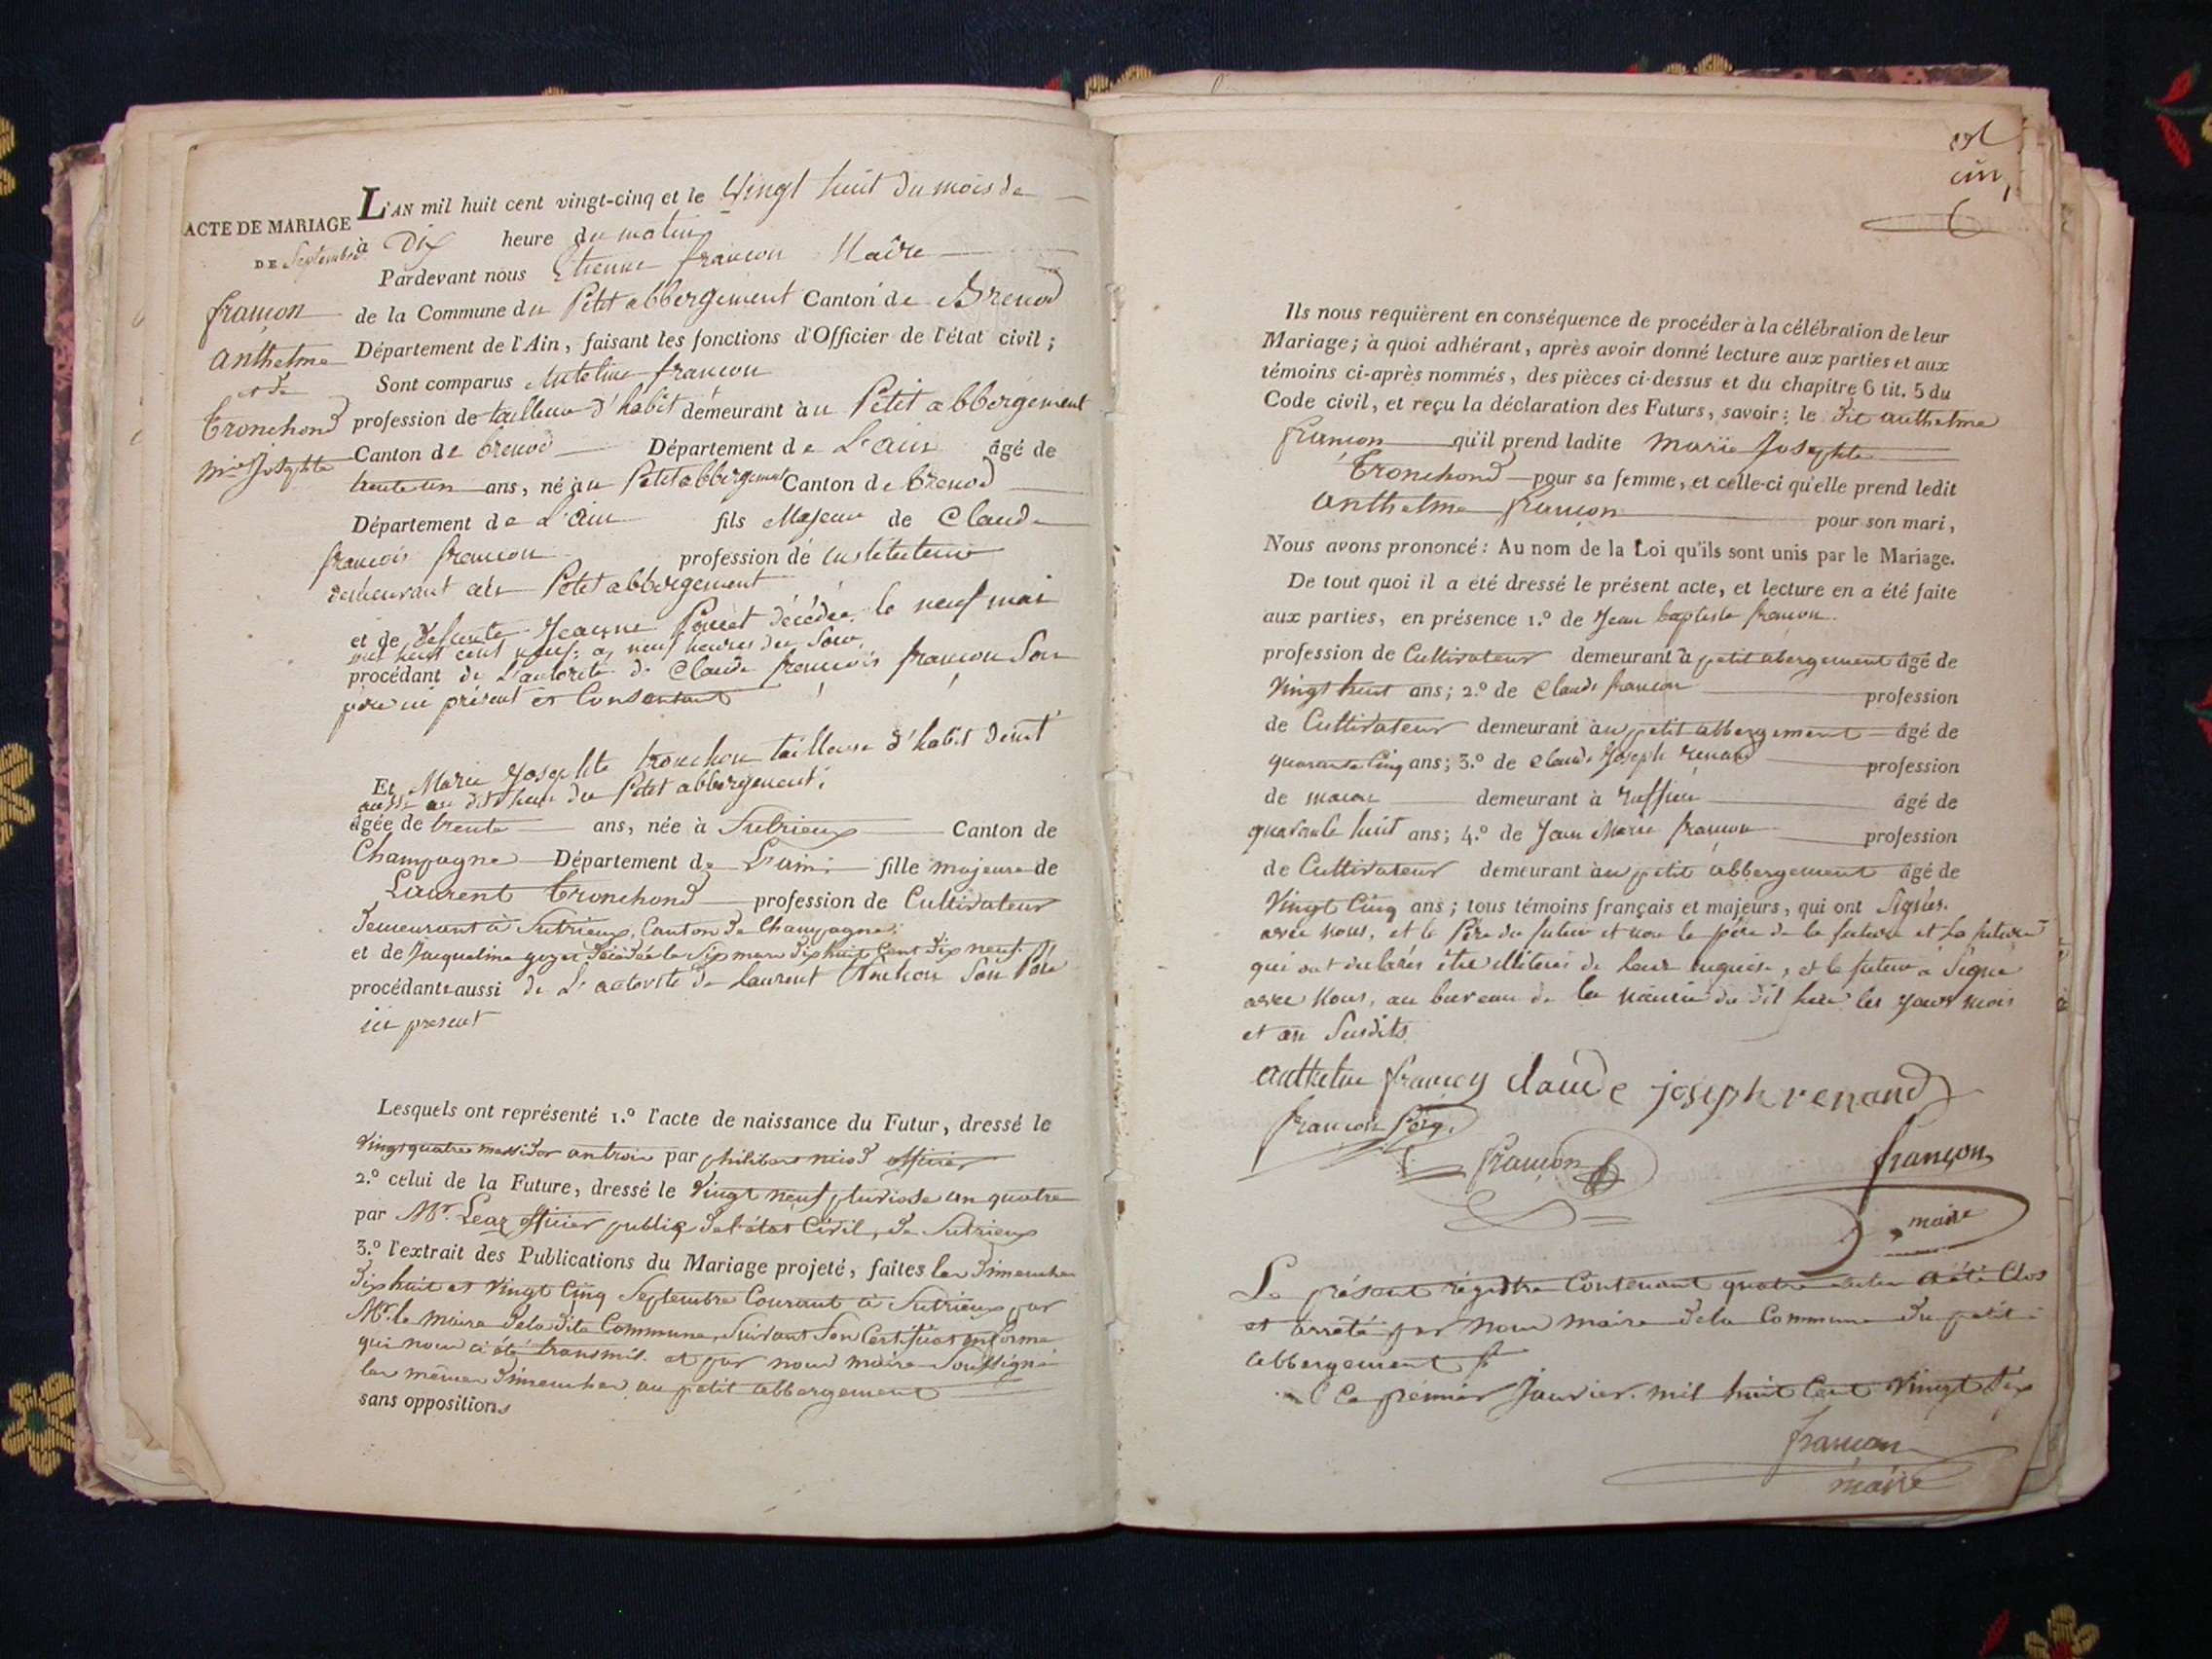 L'AN mil huit cent vingt-cinq et le Vingt huit du mois de
ACTE DE MARIAGE
DE Septembre à Dix heure du matin
Pardevant nous Etienne françon Maire
françon
de la Commune du Petit abbergement Canton de Brenod
anthelme
Département de l'Ain, faisant les fonctions d'Officier de l'état civil;
et de
Sont comparus Antelme françon
tronchond
profession de tailleur d'habit demeurant au Petit abbergement
mie Josephte
Canton de brenod Département de L'ain âgé de
trente un ans, né au Petit abbergement Canton de brenod
Département de L'ain fils Majeur de Claude
françois françon profession de instituteur
demeurant au Petit abbergement
et de defunte Jeanne décédée le neuf mai
mil huit cent neuf: a neuf heures du Soir,
procédant de L'autorité de Claude françois françon Son
père ici présent et Consentant
Et Marie Josephte tronchon tailleuse d'habit demt
aussi au dit lieu du Petit abbergement;
âgée de trente ans, née à Sutrieux Canton de
Champagne Département de L'ain; fille majeure de
Laurent tronchond profession de Cultivateur
demeurant à Sutrieux, Canton de Champagne;
et de Jacqueline goyet décédée le Six mars dix huit Cent dix neuf.
procédante aussi de L'autorité de Laurent tronchon Son Père
ici present
Lesquels ont représenté 1.º l'acte de naissance du Futur, dressé le
vingt quatre messidor an trois par philibert niod officier
2.º celui de la Future, dressé le Vingt neuf pluviose an quatre
par Mr. Leaz officier public de l'état Civil, de Sutrieux
3.º l'extrait des Publications du Mariage projeté, faites les dimenches
dix huit et Vingt Cinq Septembre Courant à Sutrieux par
Mr. le maire de la dite Commune, Suivant Son Certificat en forme
qui nous a été transmis. et par nous maire Soussigné
les mêmes dimenches au petit abbergement
sans oppositions
Ils nous requièrent en conséquence de procéder à la célébration de leur
Mariage; à quoi adhérant, après avoir donné lecture aux parties et aux
témoins ci-après nommés, des pièces ci-dessus et du chapitre 6 tit. 5 du
Code civil, et reçu la déclaration des Futurs, savoir: le dit anthelme
françon qu'il prend ladite marie Josephte
tronchond pour sa femme, et celle-ci qu'elle prend ledit
anthelme françon pour son mari,
Nous avons prononcé: Au nom de la Loi qu'ils sont unis par le Mariage.
De tout quoi il a été dressé le présent acte, et lecture en a été faite
aux parties, en présence 1.º de Jean baptiste françon
profession de Cultivateur demeurant à petit abergement âgé de
vingt huit ans; 2.º de Claude françon profession
de Cultivateur demeurant au petit abbergement âgé de
quarante Cinq ans; 3.º de Claude Joseph renand profession
de macon demeurant à ruffieu âgé de
quarante huit ans; 4.º de Jean Marie françon profession
de Cultivateur demeurant au petit abbergement âgé de
Vingt Cinq ans; tous témoins français et majeurs, qui ont Signés.
avec nous, et le Père du futur et non le père de la future et La future
qui ont déclarés être illiterés de Leur enquise, et le futur à Signé
avec Nous, au bureau de la mairie du dit lieu les jour mois
et an Susdits.
anthelme françon claude joseph renand
françon Père.
françon françon
maire
Le présent régistre Contenant quatre actes a été Clos
et arrêté par nous maire de la Commune du petit
abbergement
Ce prémier Janvier. mil huit Cent Vingt Six
françon
maire